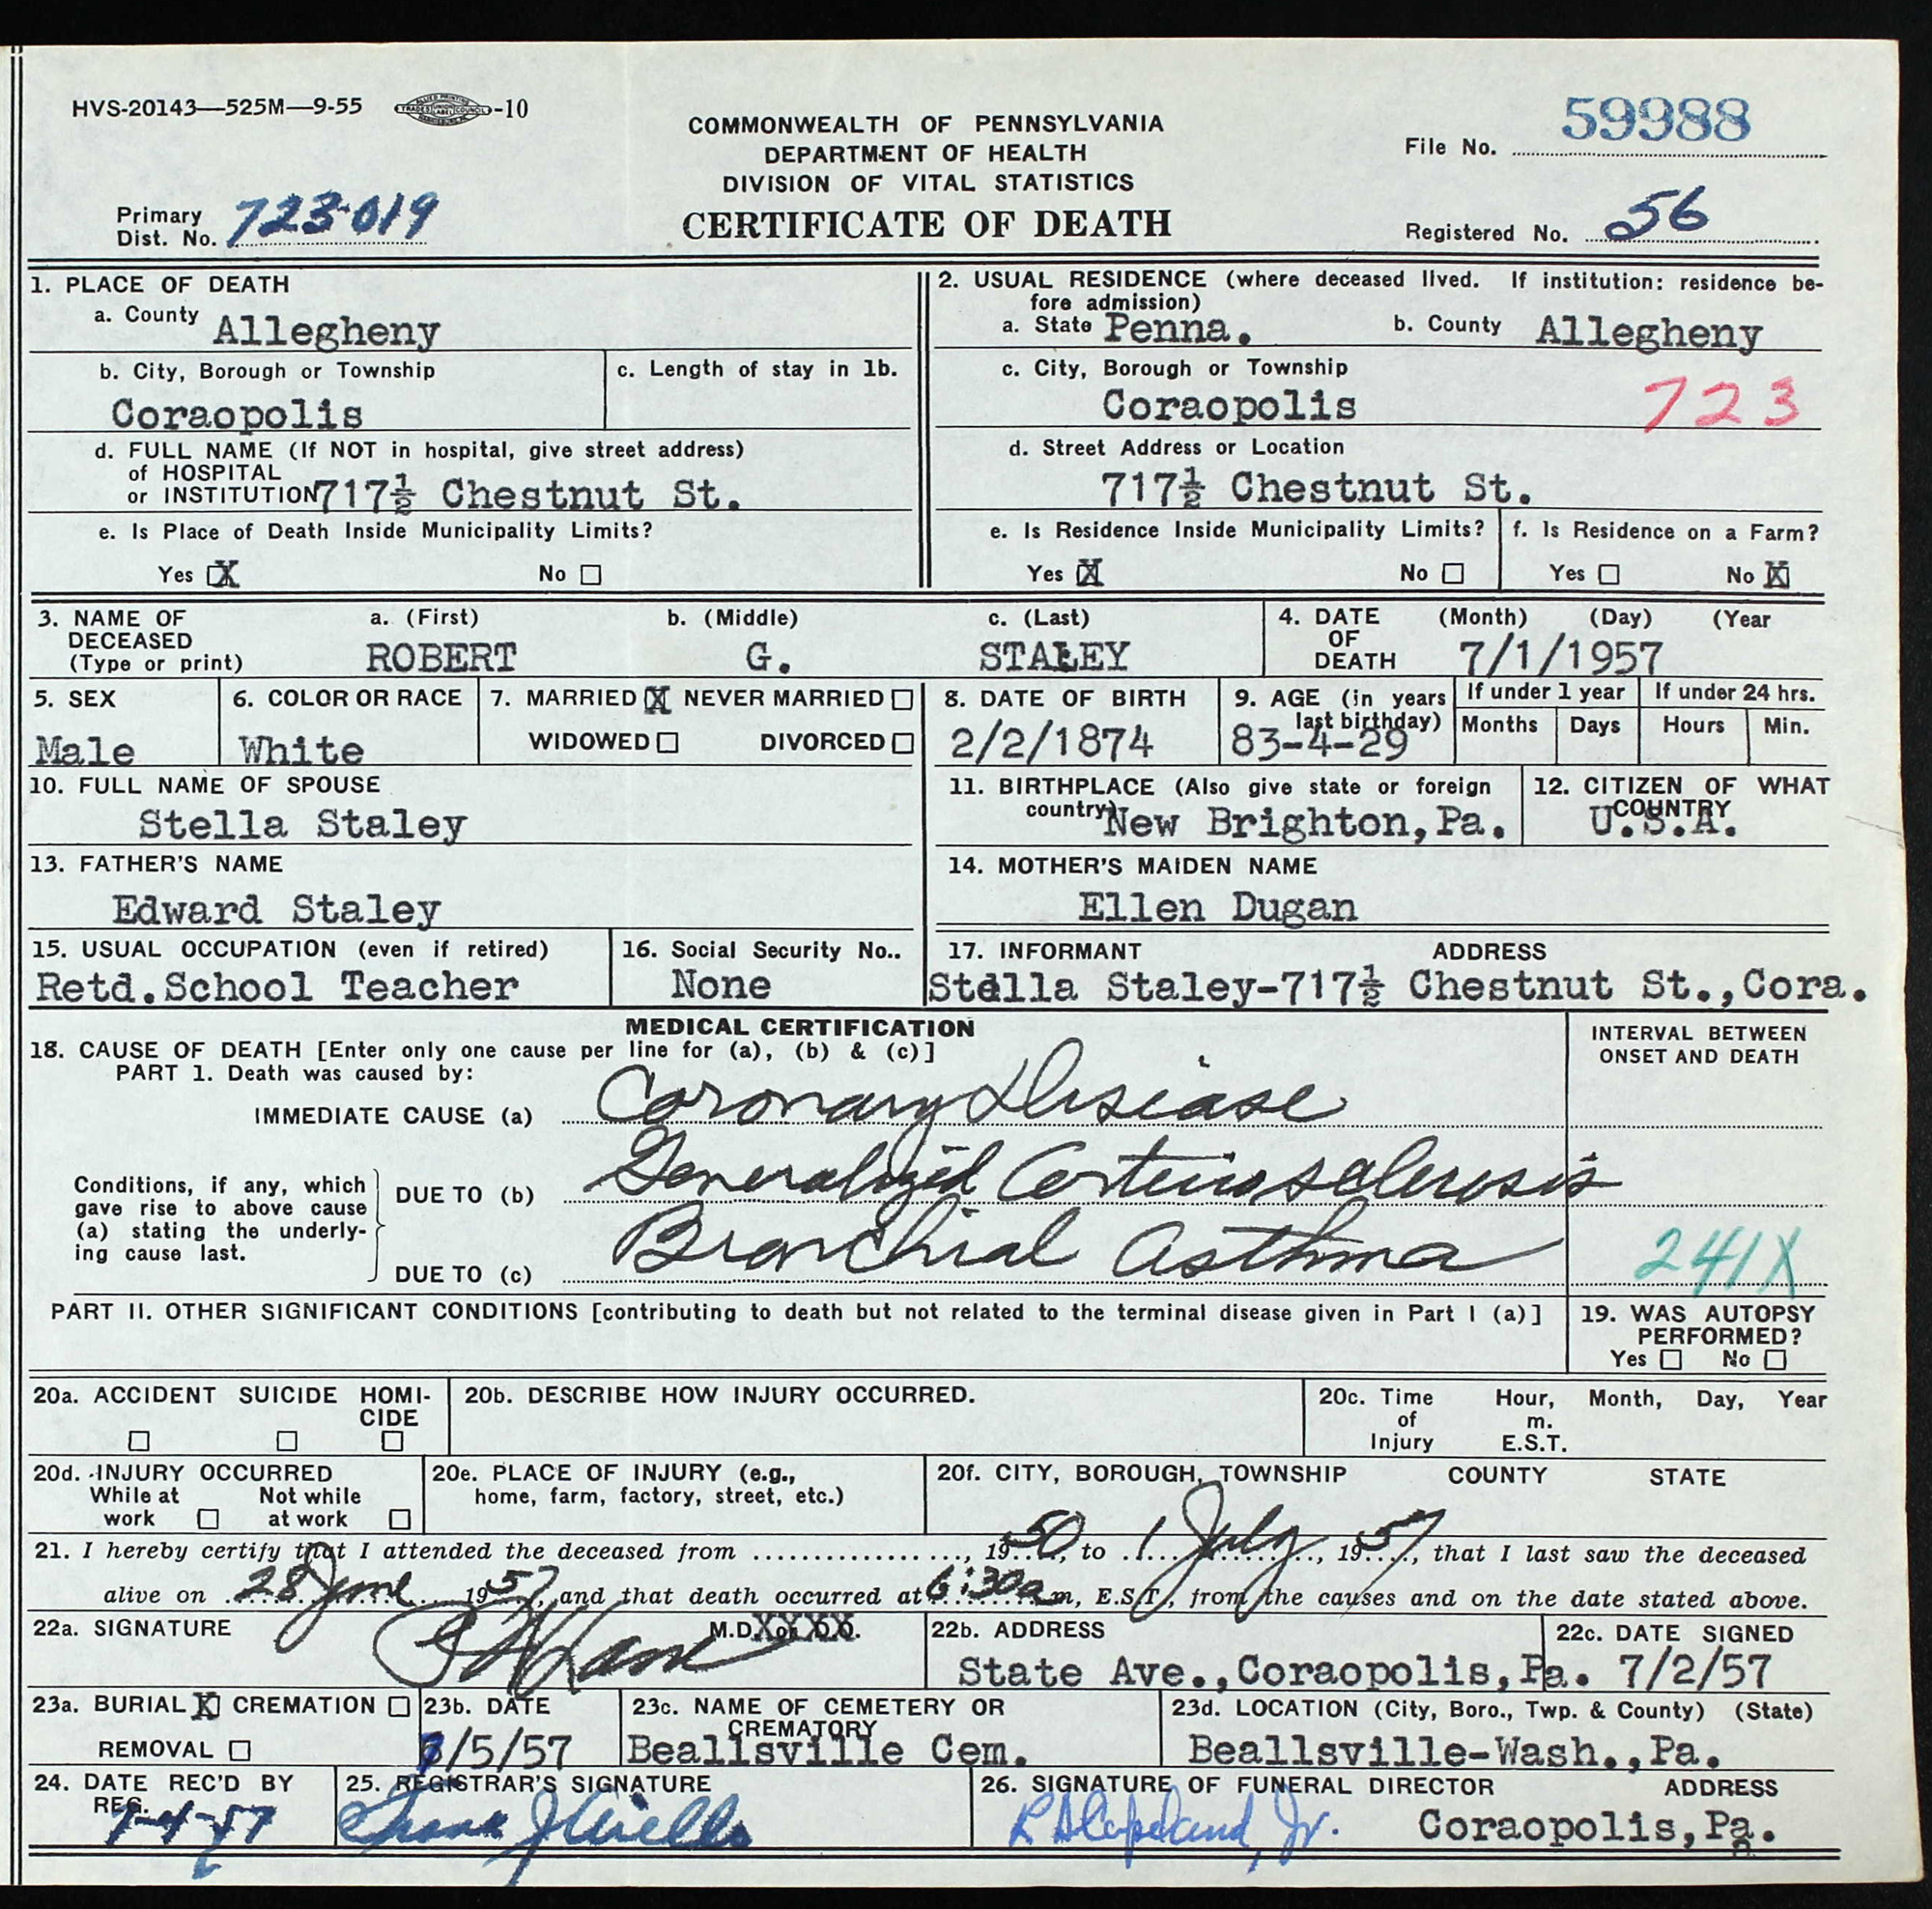 HVS-20143—525M—9-55 -10
59988
COMMONWEALTH OF PENNSYLVANIA
DEPARTMENT OF HEALTH
DIVISION OF VITAL STATISTICS
CERTIFICATE OF DEATH
File No.
Primary Dist. No. 723-019
Registered No. 56
1. PLACE OF DEATH
a. County Allegheny
b. City, Borough or Township
Coraopolis
c. Length of stay in 1b.
d. FULL NAME (If NOT in hospital, give street address)
of HOSPITAL
or INSTITUTION 717½ Chestnut St.
e. Is Place of Death Inside Municipality Limits?
Yes X No
2. USUAL RESIDENCE (where deceased lived. If institution: residence be-
fore admission)
a. State Penna. b. County Allegheny
c. City, Borough or Township
Coraopolis 723
d. Street Address or Location
717½ Chestnut St.
e. Is Residence Inside Municipality Limits? f. Is Residence on a Farm?
Yes X No Yes No X
3. NAME OF DECEASED (Type or print)
a. (First) b. (Middle) c. (Last)
ROBERT G. STALEY
4. DATE OF DEATH (Month) (Day) (Year
7/1/1957
5. SEX
Male
6. COLOR OR RACE
White
7. MARRIED X NEVER MARRIED
WIDOWED DIVORCED
8. DATE OF BIRTH
2/2/1874
9. AGE (in years last birthday)
83-4-29
If under 1 year If under 24 hrs.
Months Days Hours Min.
10. FULL NAME OF SPOUSE
Stella Staley
11. BIRTHPLACE (Also give state or foreign
country) New Brighton, Pa.
12. CITIZEN OF WHAT COUNTRY
U.S.A.
13. FATHER'S NAME
Edward Staley
14. MOTHER'S MAIDEN NAME
Ellen Dugan
15. USUAL OCCUPATION (even if retired)
Retd. School Teacher
16. Social Security No..
None
17. INFORMANT ADDRESS
Stella Staley-717½ Chestnut St., Cora.
MEDICAL CERTIFICATION
18. CAUSE OF DEATH [Enter only one cause per line for (a), (b) & (c)]
PART 1. Death was caused by:
INTERVAL BETWEEN
ONSET AND DEATH
IMMEDIATE CAUSE (a) Coronary Disease
Conditions, if any, which
gave rise to above cause
(a) stating the underly-
ing cause last.
DUE TO (b) Generalized Arteriosclerosis
DUE TO (c) Bronchial Asthma
241X
PART II. OTHER SIGNIFICANT CONDITIONS [contributing to death but not related to the terminal disease given in Part I (a)]
19. WAS AUTOPSY
PERFORMED?
Yes No
20a. ACCIDENT SUICIDE HOMI-
CIDE
20b. DESCRIBE HOW INJURY OCCURRED.
20c. Time of Injury Hour, Month, Day, Year
m.
E.S.T.
20d. INJURY OCCURRED
While at work Not while at work
20e. PLACE OF INJURY (e.g.,
home, farm, factory, street, etc.)
20f. CITY, BOROUGH, TOWNSHIP COUNTY STATE
21. I hereby certify that I attended the deceased from ..................., 1950, to 1 July, 1957, that I last saw the deceased
alive on 28 June 1957, and that death occurred at 6:30a m, E.S.T, from the causes and on the date stated above.
22a. SIGNATURE M.D.
22b. ADDRESS
State Ave., Coraopolis, Pa.
22c. DATE SIGNED
7/2/57
23a. BURIAL X CREMATION
REMOVAL
23b. DATE
7/5/57
23c. NAME OF CEMETERY OR
CREMATORY
Beallsville Cem.
23d. LOCATION (City, Boro., Twp. & County) (State)
Beallsville-Wash., Pa.
24. DATE REC'D BY
REG.
7-4-57
25. REGISTRAR'S SIGNATURE
26. SIGNATURE OF FUNERAL DIRECTOR ADDRESS
Copeland, Jr. Coraopolis, Pa.